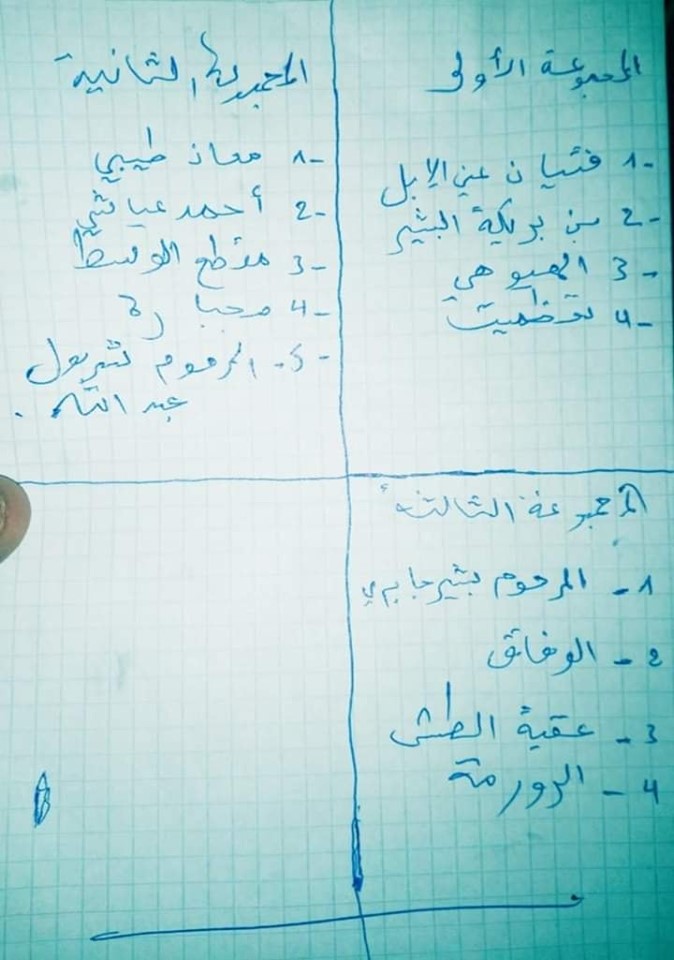 المجموعة الأولى
1- فتيان عين الإبل
2- بن بريكة البشير
3- الهبوهي
4- تقظميت
المجموعة الثانية
1- معاذ طيبي
2- أحمد عياشي
3- مقطع الوسط
4- مرحبا
5- المرحوم شربول
عبد الله.
المجموعة الثالثة
1- المرحوم بشير جابري
2- الوفاق
3- عقبة الطش
4- الرورمة